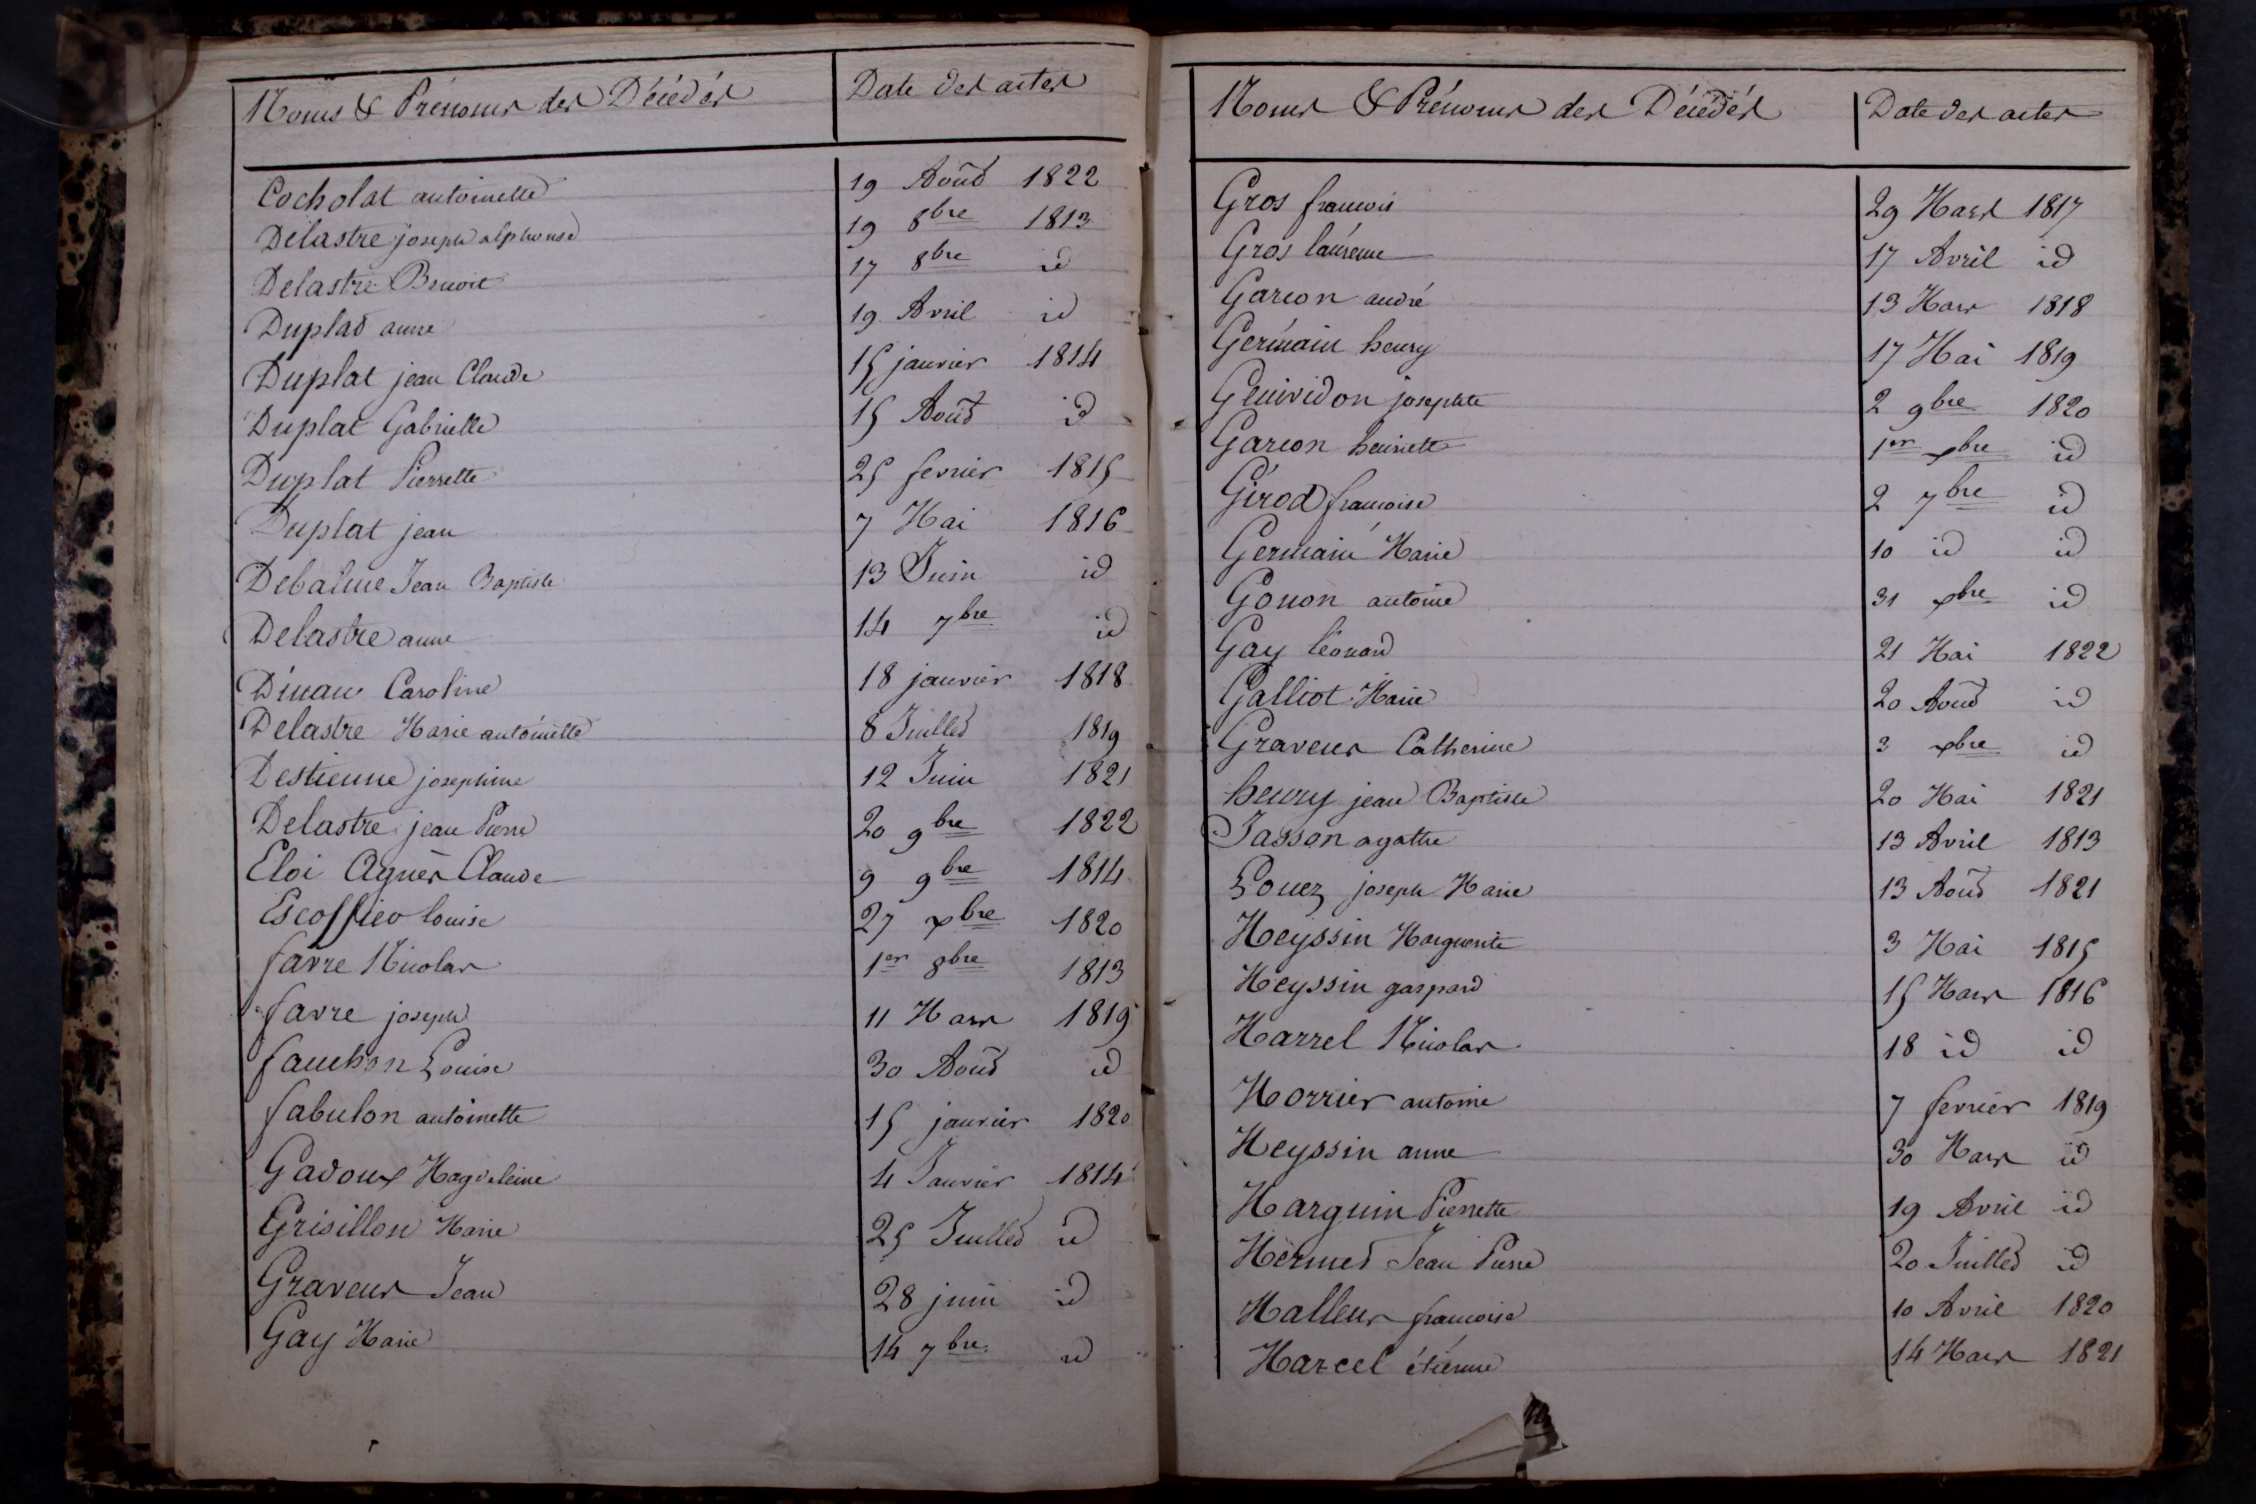 Noms & Prénoms des Décédés Date des actes
Cocholat antoinette 19 Août 1822
Delastre joseph alphonse 19 8bre 1813
Delastre Benoit 17 8bre id
Duplat anne 19 Avril id
Duplat jean Claude 15 janvier 1814
Duplat Gabrielle 15 Août id
Duplat Pierrette 25 fevrier 1815
Duplat jean 7 Mai 1816
Debalme Jean Baptiste 13 Juin id
Delastre anne 14 7bre id
Caroline 18 janvier 1818
Delastre Marie antoinette 8 Juillet 1819
Destienne josephine 12 Juin 1821
Delastre jean Pierre 20 9bre 1822
Eloi Agnès Claude 9 9bre 1814
Escoffier louise 27 xbre 1820
favre Nicolas 1er 8bre 1813
favre joseph 11 Mars 1819
fauchon Louise 30 Août id
fabulon antoinette 15 janvier 1820
Gadoux Magdeleine 4 Janvier 1814
Grisillon Marie 25 Juillet id
Graveur Jean 28 juin id
Gay Marie 14 7bre id
Noms & Prénoms des Décédés Date des actes
Gros francois 29 Mars 1817
Gros laurence 17 Avril id
Garcon andré 13 Mars 1818
Germain henry 17 Mai 1819
josephte 2 9bre 1820
Garcon henriette 1er xbre id
Girod francoise 2 7bre id
Germain Marie 10 id id
Gonon antoine 31 xbre id
Gay léonard 21 Mai 1822
Galliot Marie 20 Août id
Graveur Catherine 3 xbre id
henry jean Baptiste 20 Mai 1821
Jasson agathe 13 Avril 1813
Louez joseph Marie 13 Août 1821
Meyssin Marguerite 3 Mai 1815
Meyssin gaspard 15 Mars 1816
Marrel Nicolas 18 id id
Morrier antoine 7 fevrier 1819
Meyssin anne 30 Mars id
Marguin Pierrette 19 Avril id
Mermet Jean Pierre 20 Juillet id
Malleur francoise 10 Avril 1820
Marcel étienne 14 Mars 1821